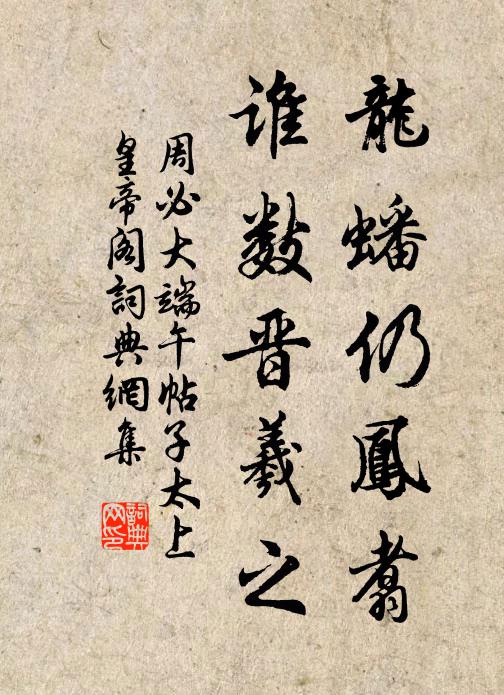 龍蟠仍鳳翥
誰數晉羲之
周必大端午帖子太上
皇帝閣詞典網集
詞典網印